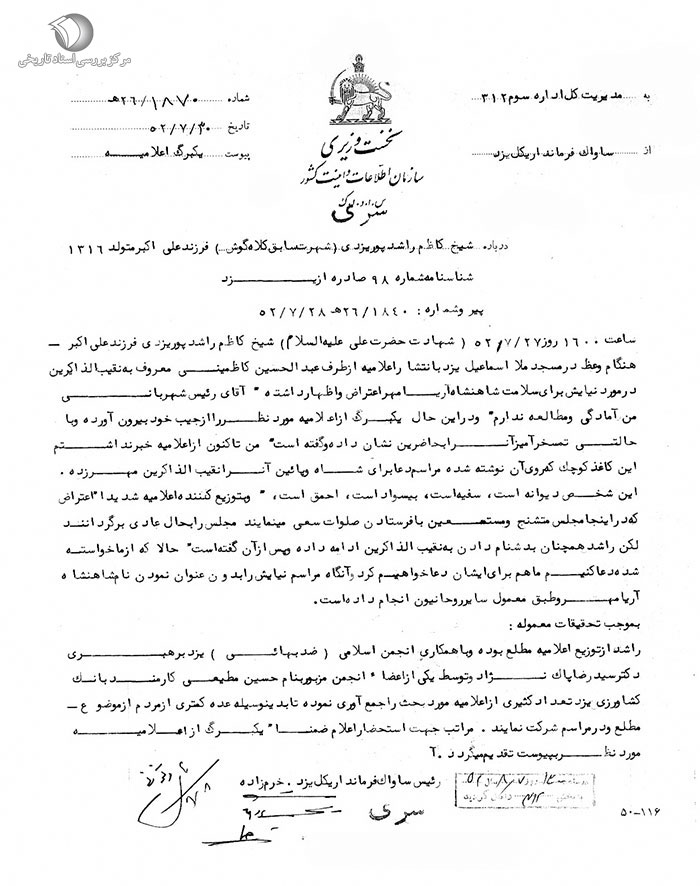 مرکز بررسی اسناد تاریخی
به مدیریت کل اداره سوم ۳۱۲
از ساواک فرمانداریکل یزد
نخست وزیری
سازمان اطلاعات و امنیت کشور
س.ا.و.ا.ک
سری
شماره ۲۶/۱۸۷۰ھ
تاریخ ۵۲/۷/۳۰
پیوست یکبرگ اعلامیه
درباره شیخ کاظم راشد پوریزدی (شهرت سابق کلاه گوش) فرزند علی اکبر متولد ۱۳۱۶
شناسنامه شماره ۹۸ صادره از یزد
پیرو شماره : ۲۶/۱۸۴۰ھ ۵۲/۷/۲۸
ساعت ۱۶۰۰ روز ۵۲/۷/۲۷ ( شهادت حضرت علی علیه السلام) شیخ کاظم راشد پوریزدی فرزند علی اکبر –
هنگام وعظ در مسجد ملا اسماعیل یزد با انتشار اعلامیه از طرف عبدالحسین کاظمینی معروف به نقیب الذاکرین
در مورد نیایش برای سلامت شاهنشاه آریامهر اعتراض و اظهار داشته " آقای رئیس شهربانی
من آمادگی ومطالعه ندارم" ودراین حال یکبرگ از اعلامیه مورد نظر را از جیب خود بیرون آورده وبا
حالتی تمسخرآمیز آنرا بحاضرین نشان داده وگفته است" من تاکنون از اعلامیه خبر نداشتم
این کاغذ کوچک که روی آن نوشته شده مراسم دعا برای شاه وپائین آنرا نقیب الذاکرین مهر زده .
این شخص دیوانه است ، سفیه است، بیسواد است ، احمق است ، " وبتوزیع کننده اعلامیه شدیدا" اعتراض
که در اینجا مجلس متشنج ومستمعین با فرستادن صلوات سعی مینمایند مجلس را بحال عادی برگردانند
لکن راشد همچنان بدشنام دادن به نقیب الذاکرین ادامه داده وپس از آن گفته است" حالا که از ما خواسته
شده دعا کنیم ما هم برای ایشان دعا خواهیم کرد وآنگاه مراسم نیایش را بدون عنوان نمودن نام شاهنشاه
آریامهر وطبق معمول سایر روحانیون انجام داده است.
بموجب تحقیقات معموله :
راشد از توزیع اعلامیه مطلع بوده وبا همکاری انجمن اسلامی ( ضد بهائی ) یزد برهبری
دکتر سید رضا پاک نژاد وتوسط یکی از اعضاء انجمن مزبور بنام حسین مطیعی کارمند بانک
کشاورزی یزد تعداد کثیری از اعلامیه مورد بحث را جمع آوری نموده تا بدینوسیله عده کمتری از مردم از موضوع –
مطلع ودر مراسم شرکت نمایند . مراتب جهت استحضار اعلام ضمنا" یکبرگ از اعلامیه
مورد نظر بپیوست تقدیم میگردد. آ
رئیس ساواک فرمانداریکل یزد . خرم زاده
سری
۵۰-۱۱۶